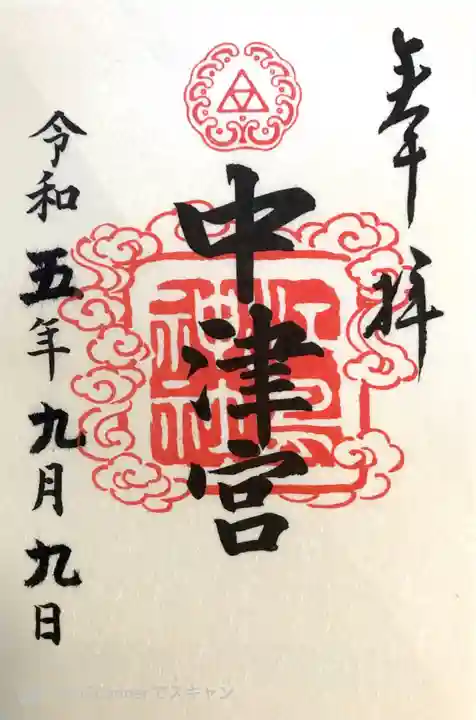 奉拝
中津宮
江島
神社
令和五年九月九日
でスキャン